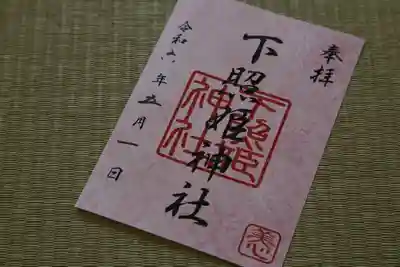 奉拝
下照姫神社
下照姫神社
令和六年五月一日